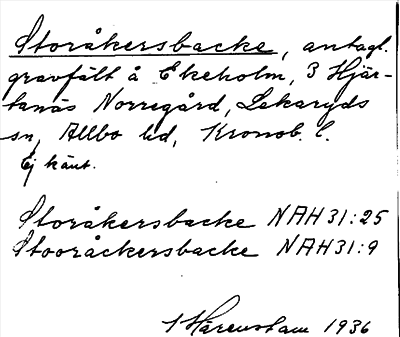 Storåkersbacke, antagl.
gravfält å Ekeholm, 3 Hjär-
tanäs Norregård, Lekaryds
sn, Allbo hd, Kronob. l.
Ej känt.
Storåkersbacke NAH 31:25
Stooråckersbacke NAH 31:9
I Härenstam 1936